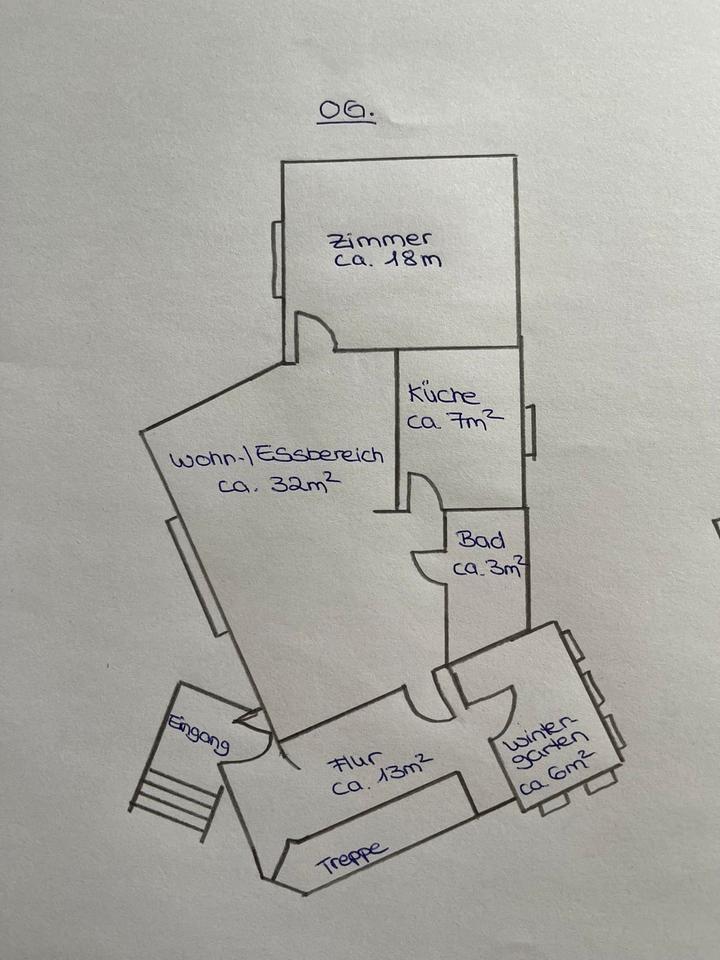 OG.
Zimmer
ca. 18m
Küche
ca. 7m²
Wohn-/Essbereich
ca. 32m²
Bad
ca. 3m²
Eingang
Flur
ca. 13m²
Winter
garten
ca. 6m²
Treppe